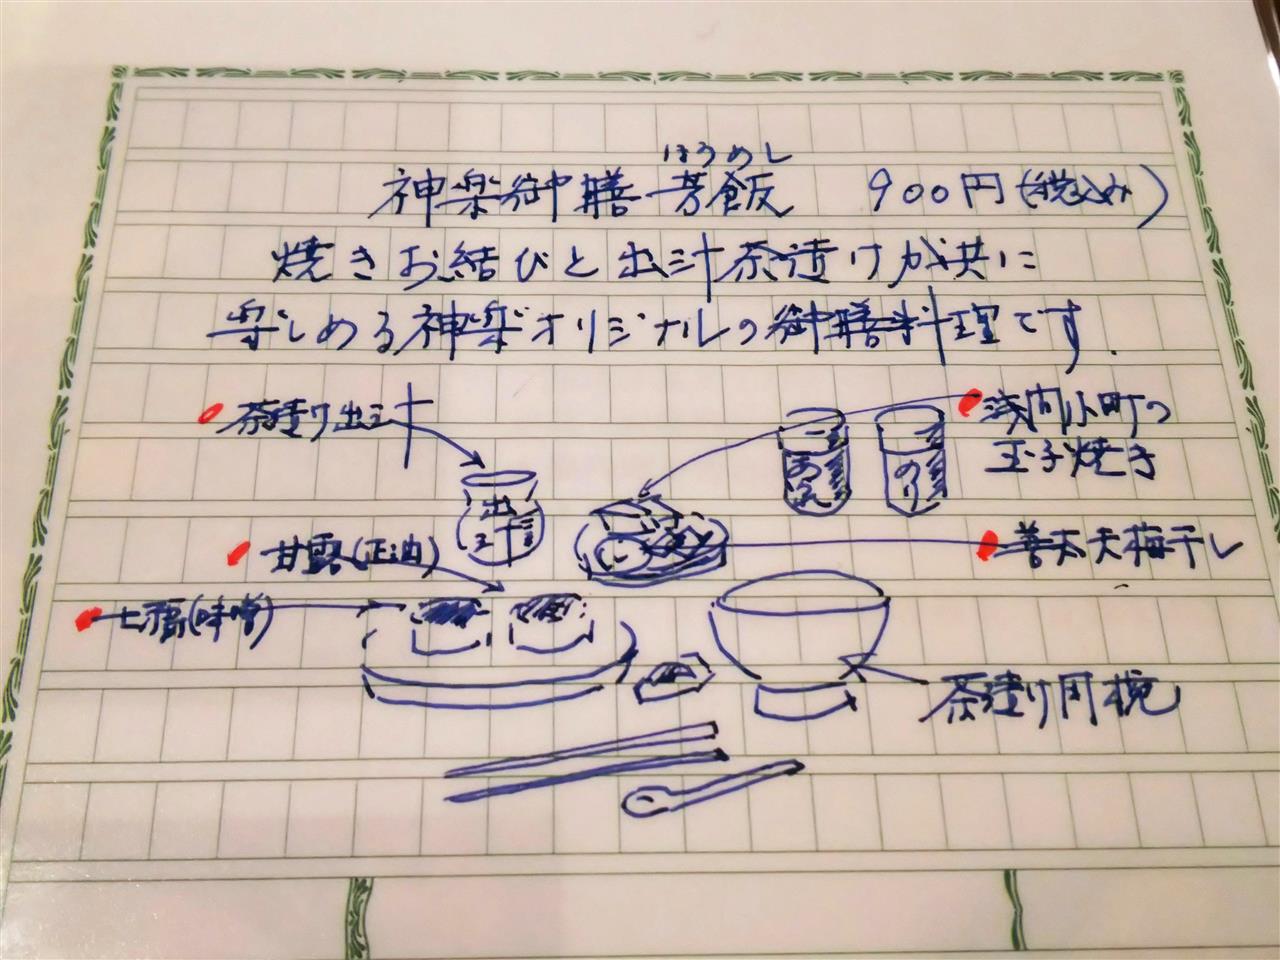 ほうめし
神楽御膳 芳飯 900円(税込み)
焼きお結びと出汁茶漬けが共に
楽しめる神楽オリジナルの御膳料理です.
茶漬け出汁
浅間小町の
玉子焼き
あられ
のり
出汁
甘露(正油)
善太夫梅干し
七福(味噌)
茶漬け用椀